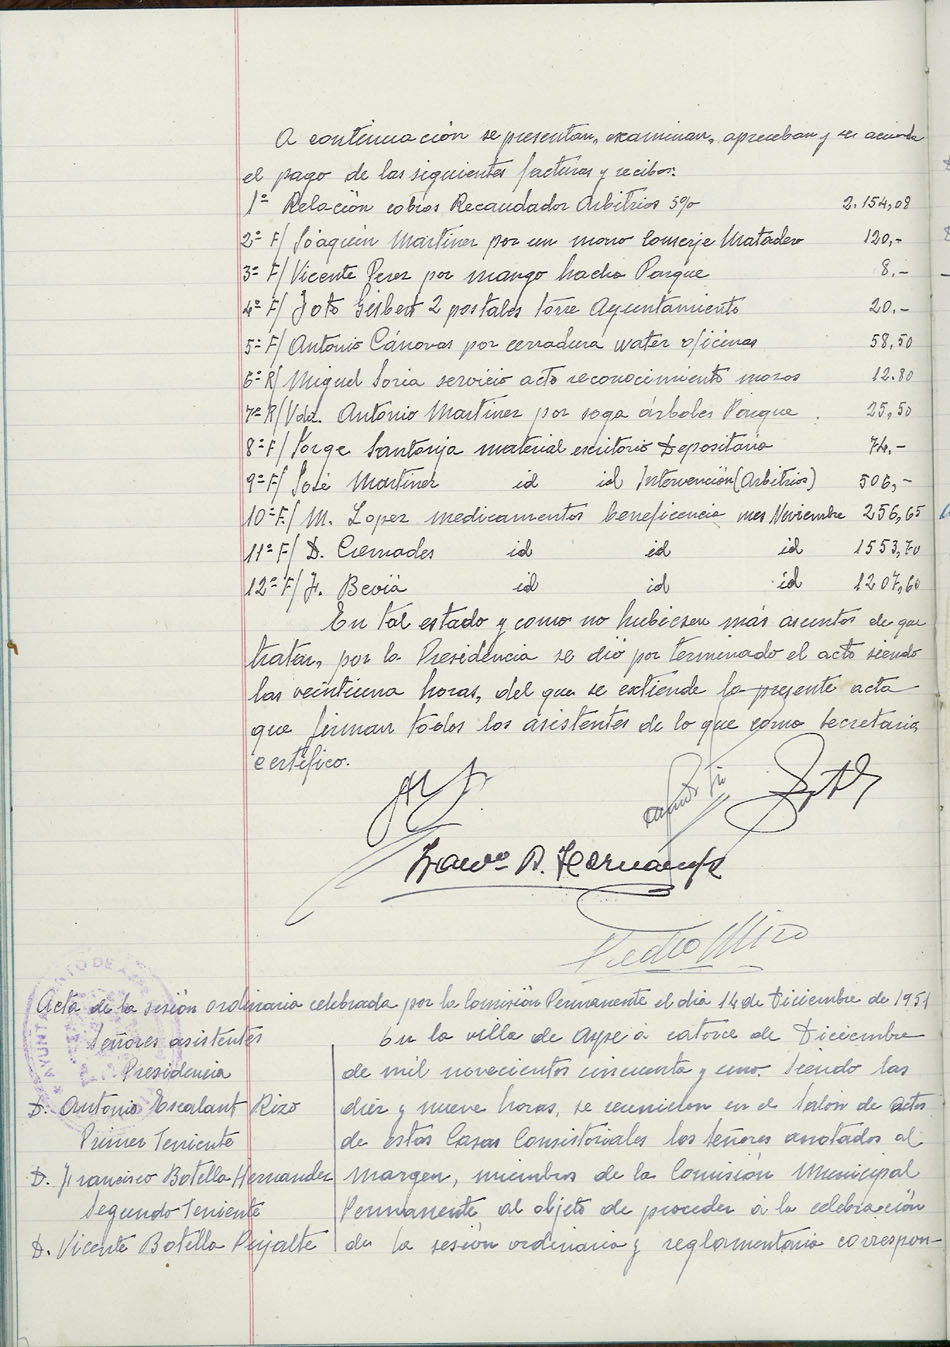 A continuación se presentan, examinan, aprueban y se acuerda
el pago de las siguientes facturas y recibos:
1ª Relación cobros Recaudador Arbitrios 5% 2.154,08
2ª F/ Joaquín Martinez por un mono Conserje Matadero 120,-
3ª F/ Vicente Perez por mango hacha Parque 8,-
4ª F/ Foto Gisbert 2 postales torre Ayuntamiento 20,-
5ª F/ Antonio Cánovas por cerradura water oficinas 58,50
6ª R/ Miguel Soria servicio acto reconocimiento mozos 12.80
7ª R/ Vda. Antonio Martinez por soga árboles Parque 25,50
8ª F/ Jorge Santonja material escritorio Depositario 74,-
9ª F/ José Martinez id id Intervención (Arbitrios) 506,-
10ª F/ M. Lopez medicamentos beneficencia mes Noviembre 256,65
11ª F/ D. Cremades id id id 1553,70
12ª F/ F. Beviá id id id 1207,60
En tal estado y como no hubiesen más asuntos de que
tratar, por la Presidencia se dió por terminado el acto siendo
las veintiuna horas, del que se extiende la presente acta
que firman todos los asistentes de lo que como Secretario,
certifico.
Franco B. Hernandez
Pedro Miro
AYUNTAMIENTO DE ASPE
Acta de la sesión ordinaria celebrada por la Comisión Permanente el dia 14 de Diciembre de 1951
Señores asistentes
Presidencia
D. Antonio Escalant Rizo
Primer Teniente
D. Francisco Botella Hernandez
Segundo Teniente
D. Vicente Botella Pujalte
En la villa de Aspe a catorce de Diciembre
de mil novecientos cincuenta y uno. Siendo las
diez y nueve horas, se reunieron en el Salón de actos
de estas Casas Consistoriales los señores anotados al
margen, miembros de la Comisión Municipal
Permanente al objeto de proceder a la celebración
de la sesión ordinaria y reglamentaria correspon-